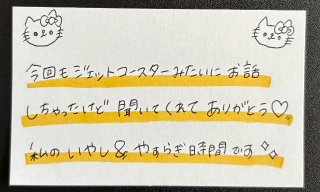 今回もジェットコースターみたいにお話
しちゃったけど聞いてくれてありがとう♡
私のいやし&やすらぎ時間です✧✧